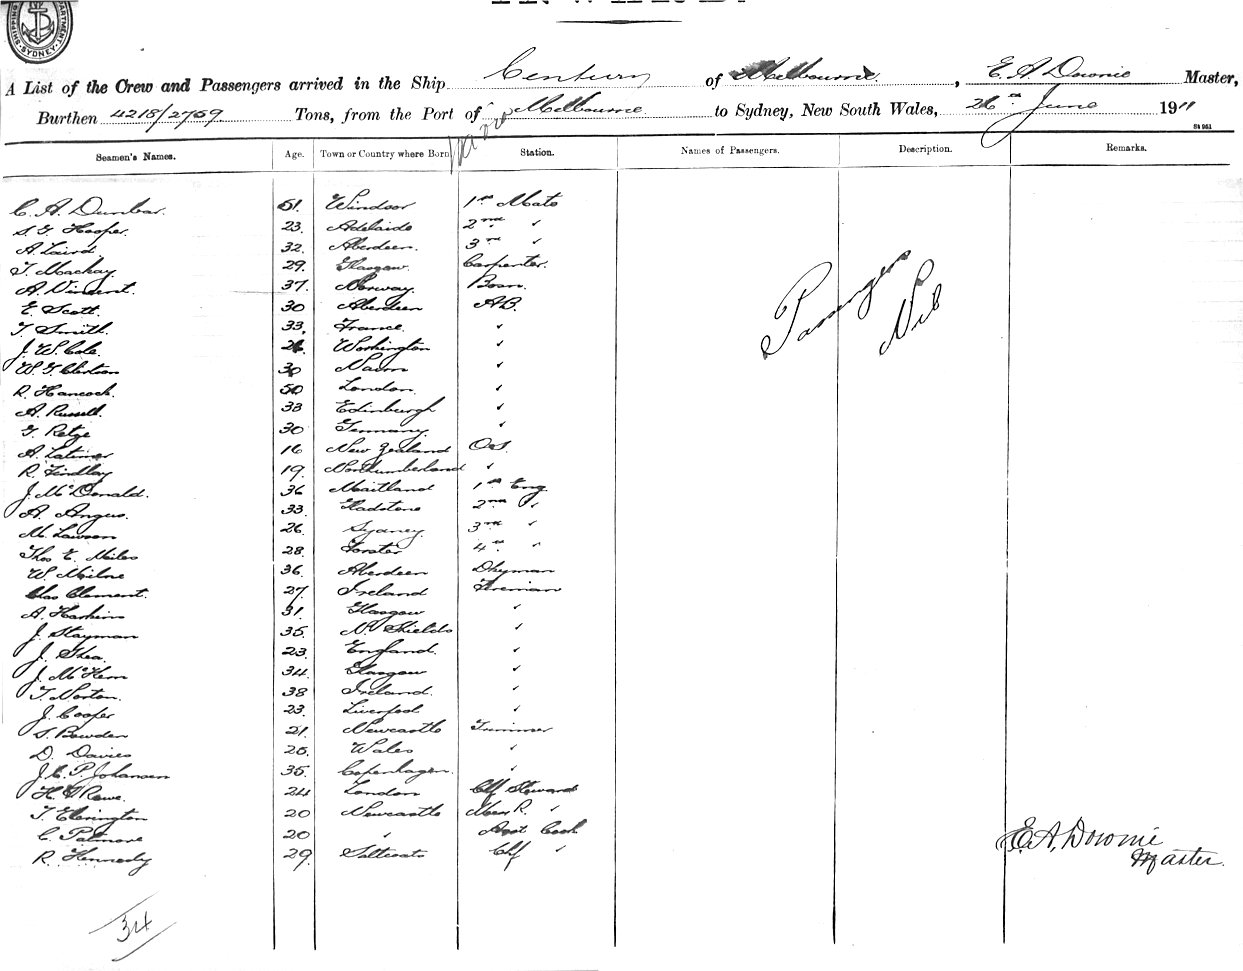 SHIPPING DEPARTMENT SYDNEY
INWARD.
A List of the Crew and Passengers arrived in the Ship Century of Melbourne, E. A. Downie Master,
Burthen 4218/2769 Tons, from the Port of Melbourne to Sydney, New South Wales, 26th June 1911
St 961
Seamen's Names. Age. Town or Country where Born Station. Names of Passengers. Description. Remarks.
C. A. Dunbar. 51. Windsor 1st Mate
S. G. Hooper. 23. Adelaide 2nd "
A. Laird. 32. Aberdeen. 3rd "
T. Mackay 29. Glasgow. Carpenter.
A. Vincent. 37. Norway. Bosn.
E. Scott. 30 Aberdeen AB.
T. Smith. 33. France. "
J. W. Cole. Workington "
W. G. 30 Nairn "
R. Hancock. 50 London. "
A. Russell. 38 Edinburgh "
30 Germany. "
A. Latimer 16 New Zealand O.S.
R. Findlay 19. Northumberland "
J. McDonald. 36 Maitland 1st Eng
A. Angus. 33. Gladstone 2nd "
M. Lawson 26. Sydney. 3rd "
Thos E. Miles 28. Forster 4th "
W. Milne 36. Aberdeen Dkyman
Chas Clement. 27. Ireland Fireman
A. Harkins 31. Glasgow "
J. Stayman 35. N. Shields "
J. Shea. 23. England. "
J. 34. Glasgow "
T. Norton. 38 Ireland. "
J. Cooper 23. Liverpool "
S. Bowden 21. Newcastle Trimmer
D. Davies 25. Wales "
J. C. P. Johansen 35. Copenhagen. "
H. Rowe. 24 London Chf Steward
T. Elerington 20 Newcastle Mess R. "
C. Patmore 20 " Asst Cook
R. Kennedy 29. Saltcoats Chf "
Passengers Nil
E. A. Downie
Master.
34